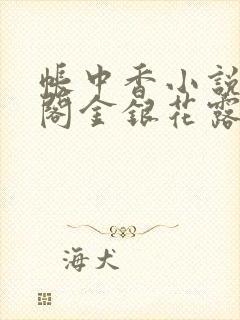 帳中香小說
閣金銀花露
海犬